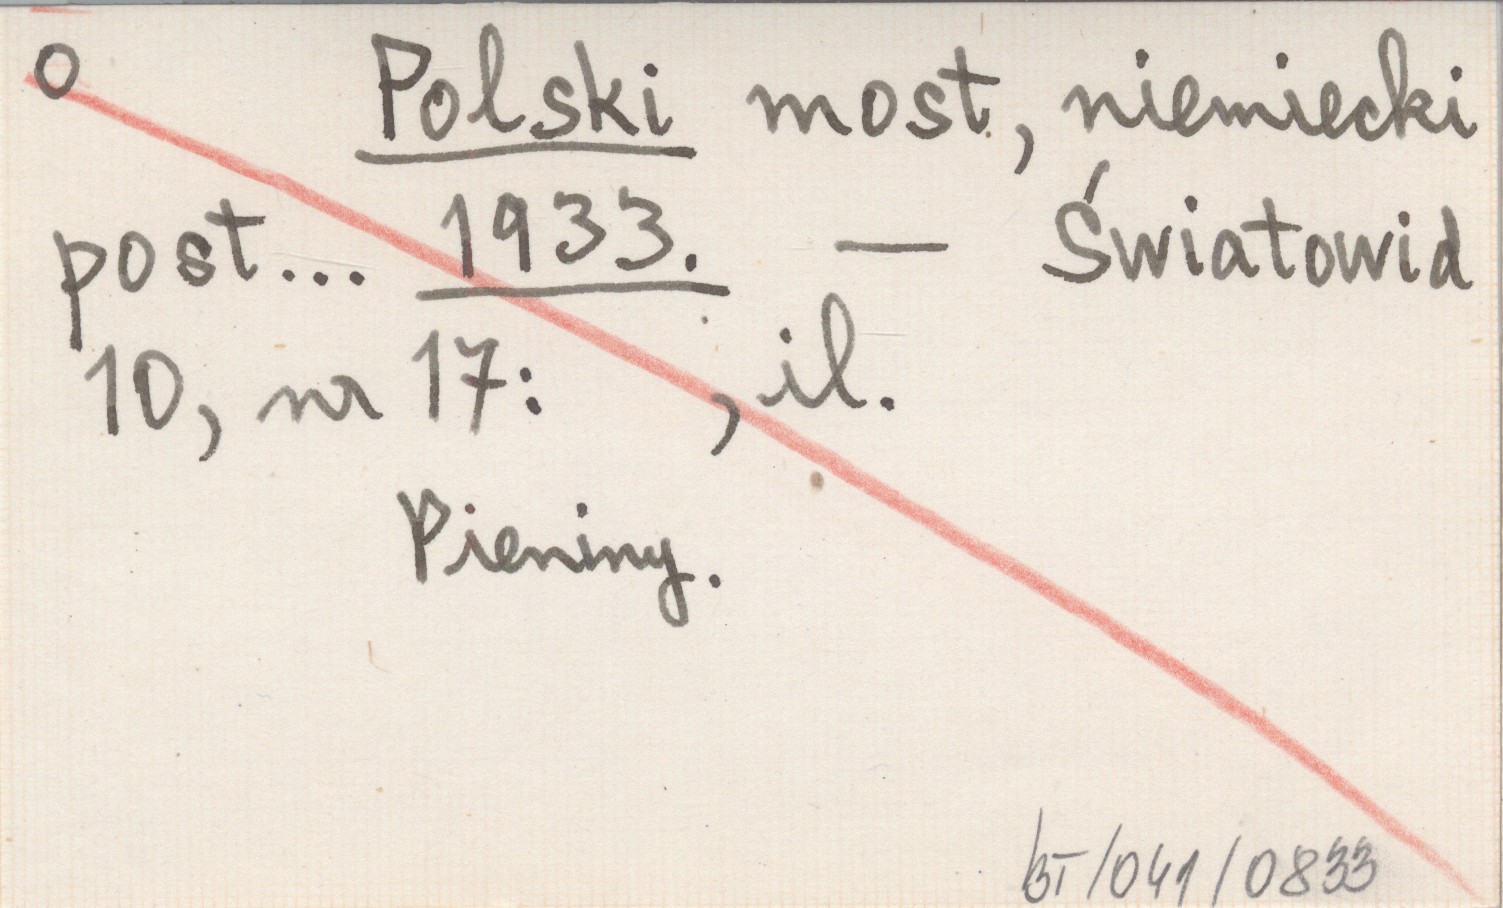 o Polski most, niemiecki
post... 1933. — Światowid
10, nr 17: , il.
Pieniny.
BT/041/0833